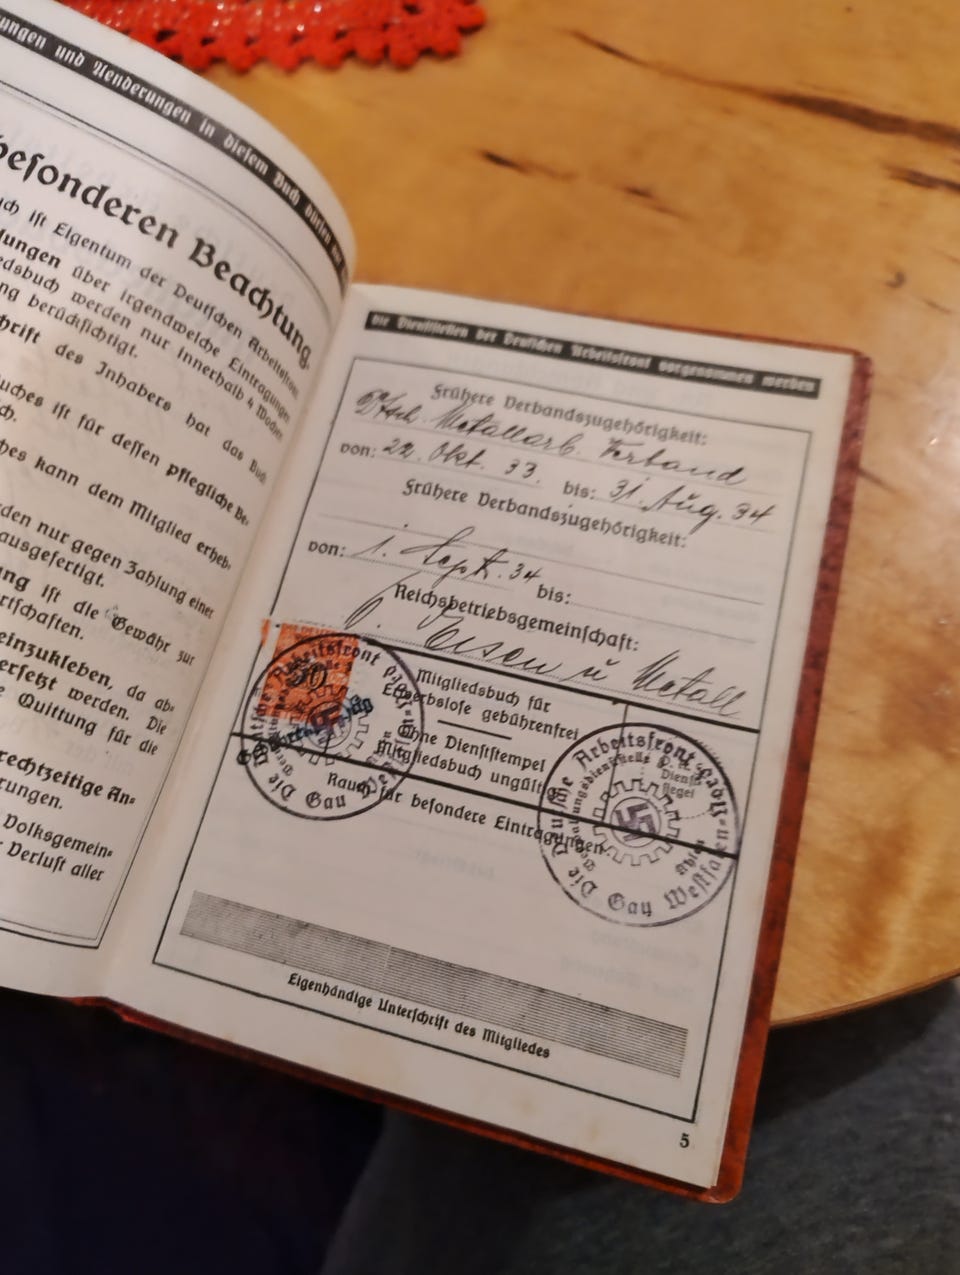 ungen und Aenderungen in diesem Buch dürfen nur
besonderen Beachtung.
uch ist Eigentum der Deutschen Arbeitsfront.
dungen über irgendwelche Eintragungen
edsbuch werden nur innerhalb 4 Wochen
ng berücksichtigt.
hrift des Inhabers hat das Buch
uches ist für dessen pflegliche Be-
ch.
hes kann dem Mitglied erheb-
den nur gegen Zahlung einer
ausgefertigt.
ung ist die Gewähr zur
rtschaften.
einzukleben, da ab-
ersetzt werden. Die
e Quittung für die
rechtzeitige An-
rungen.
Volksgemein-
r Verlust aller
die Dienststellen der Deutschen Arbeitsfront vorgenommen werden
Frühere Verbandszugehörigkeit:
Dtsch. Metallarb. Verband
von: 22. Okt. 33. bis: 31. Aug. 34
Frühere Verbandszugehörigkeit:
von: 1. Sept. 34 bis:
Reichsbetriebsgemeinschaft:
6. Eisen u Metall
50
Mitgliedsbuch für
Erwerbslose gebührenfrei
Ohne Dienststempel
Mitgliedsbuch ungültig
Raum für besondere Eintragungen
Die Deutsche Arbeitsfront
Gau Westfalen
Die Deutsche Arbeitsfront
Verwaltungsdienststelle
Dienst-
siegel
Ahlen
Gau Westfalen
Eigenhändige Unterschrift des Mitgliedes
5